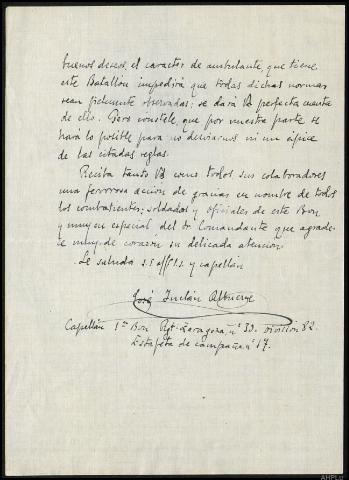 buenos deseos, el caracter de ambulante, que tiene
este Batallón impedirá que todas dichas normas
sean fielmente observadas: se dará Vd perfecta cuenta
de ello. Pero constele, que por nuestra parte se
hará lo posible para no desviarnos ni un ápice
de las citadas reglas.
Reciba tanto Vd como todos sus colaboradores
una fervorosa acción de gracias en nombre de todos
los combatientes; soldados y oficiales de este Bon
y muy en especial del Sr Comandante que agrade-
ce muy de corazón su delicada atención
Le saluda s.s. affmo s.s. y capellán
José Inclán
Capellán 1er Bon Rgt. Zaragoza, nº 30. División 82.
Estafeta de campaña nº 17.
AHPLU